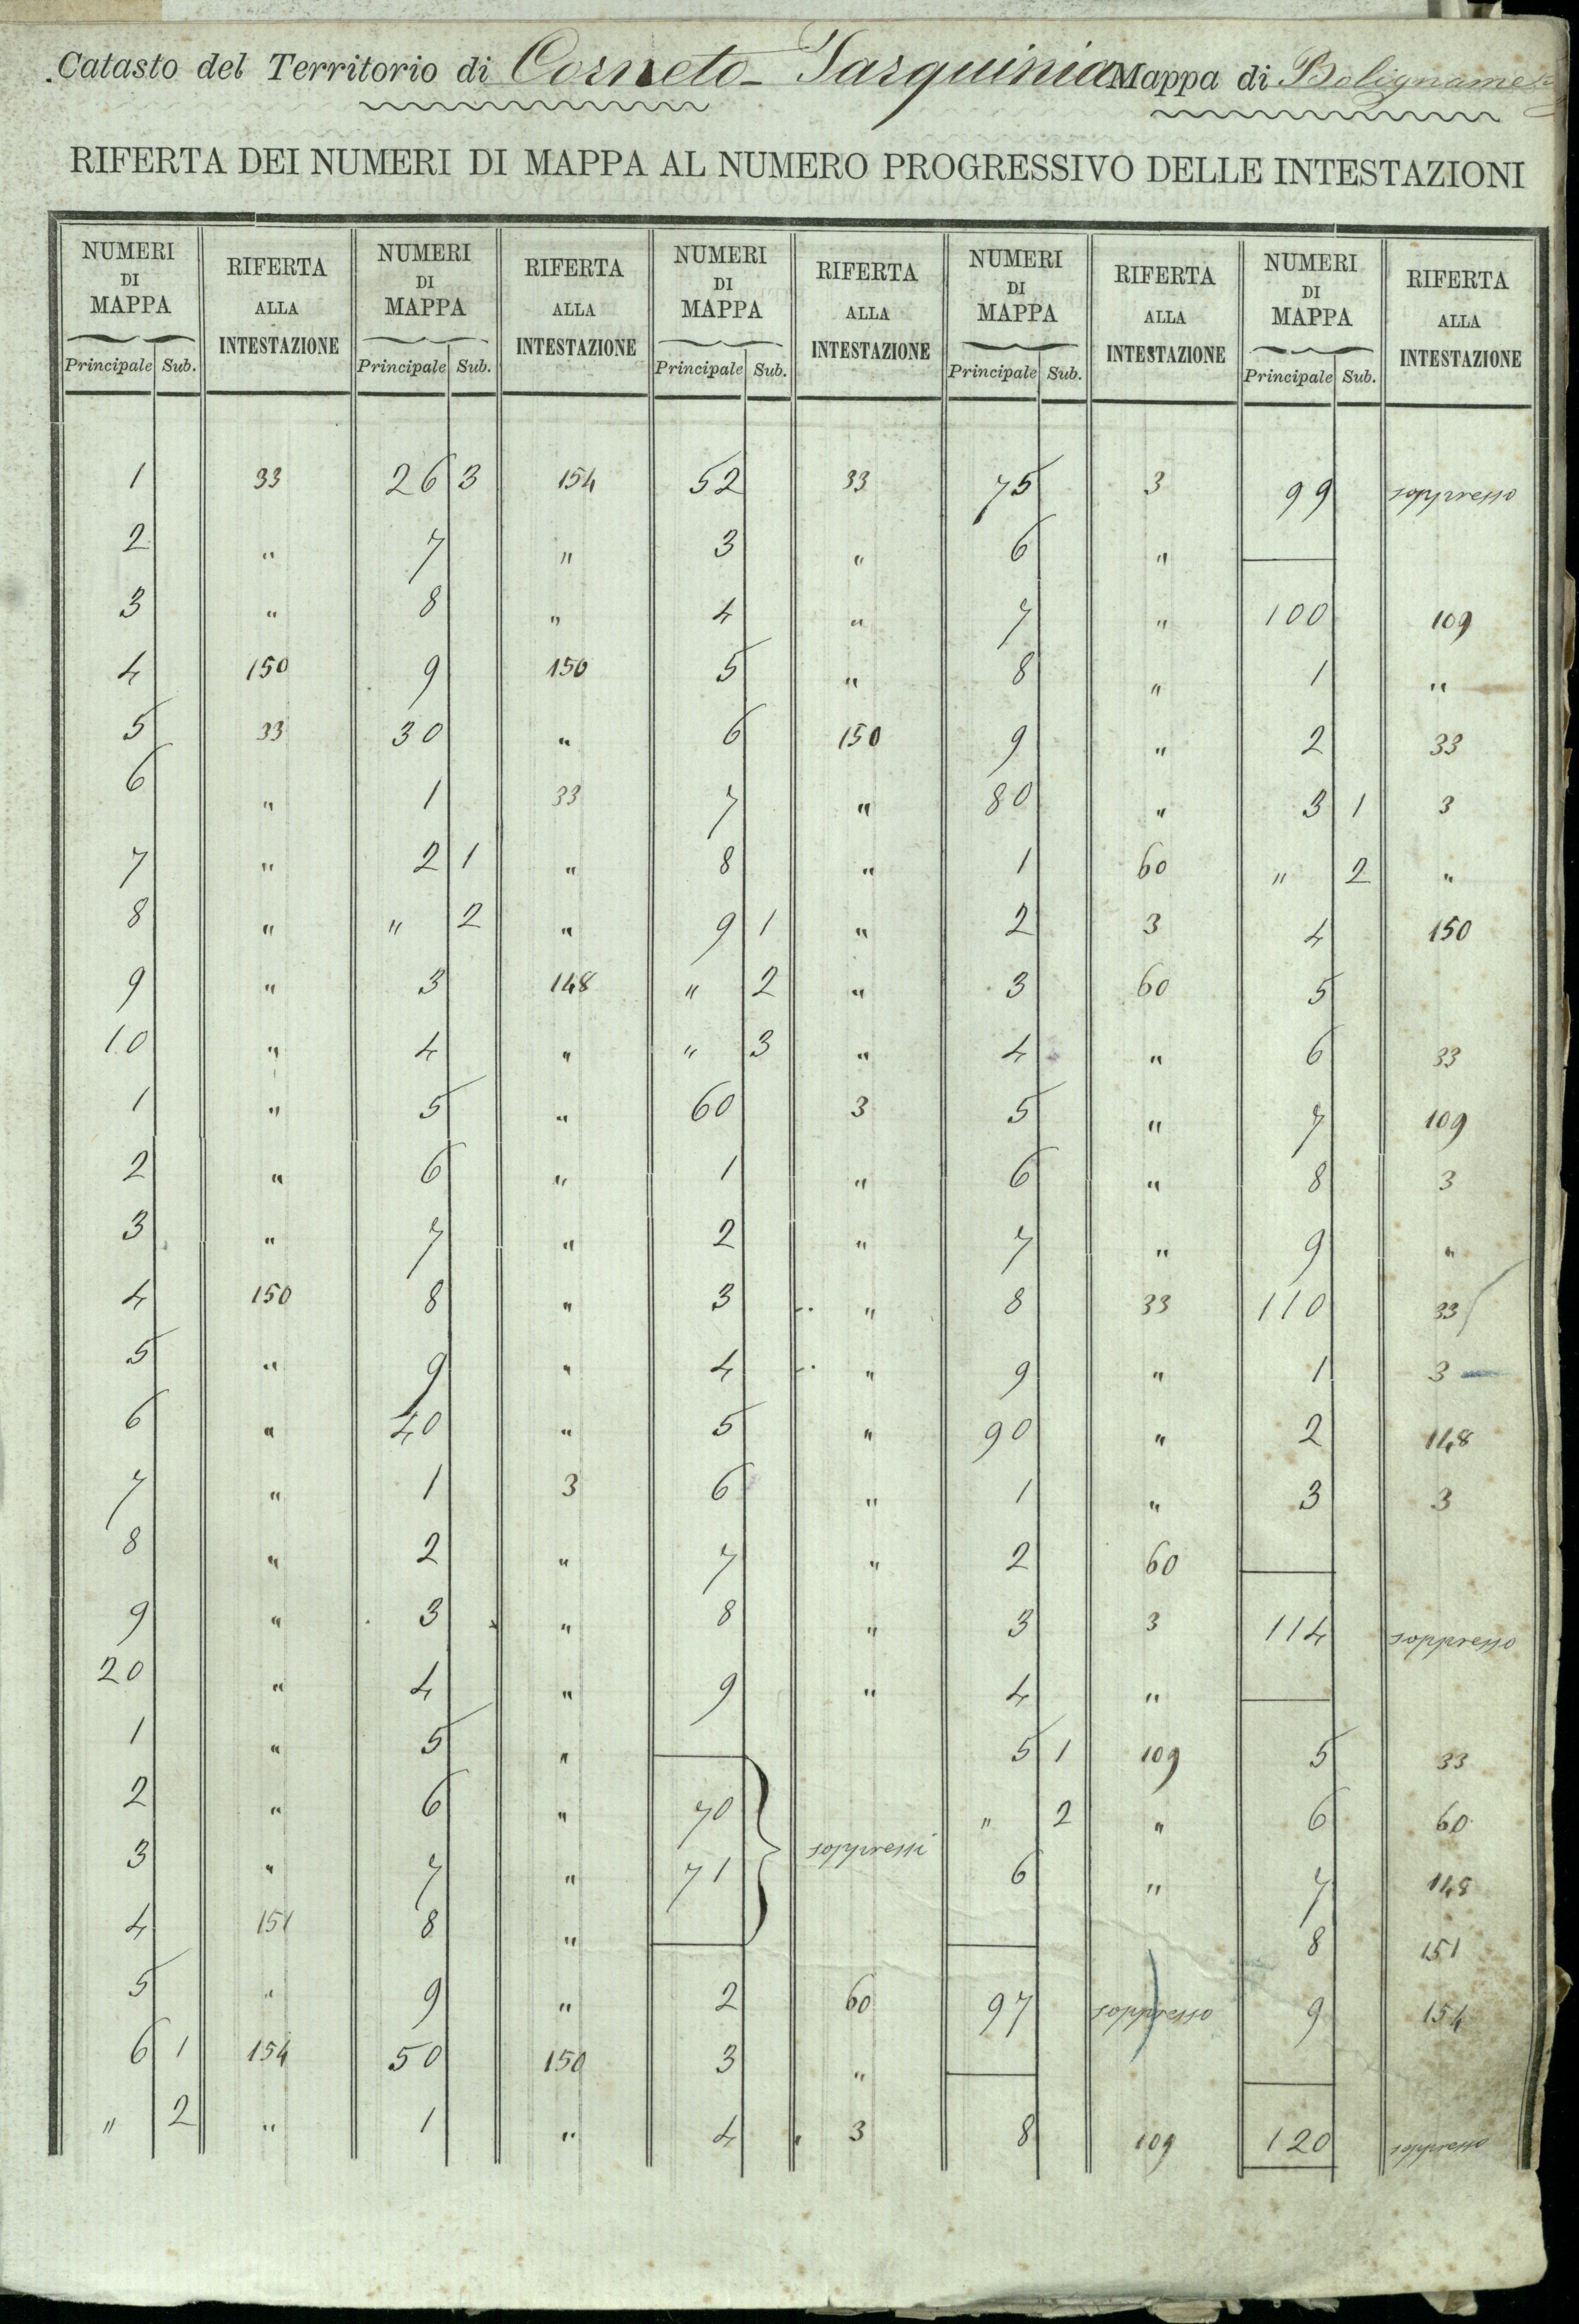 Catasto del Territorio di Corneto-Tarquinia Mappa di Bolignamesi
RIFERTA DEI NUMERI DI MAPPA AL NUMERO PROGRESSIVO DELLE INTESTAZIONI
NUMERI DI MAPPA RIFERTA ALLA INTESTAZIONE NUMERI DI MAPPA RIFERTA ALLA INTESTAZIONE NUMERI DI MAPPA RIFERTA ALLA INTESTAZIONE NUMERI DI MAPPA RIFERTA ALLA INTESTAZIONE NUMERI DI MAPPA RIFERTA ALLA INTESTAZIONE
Principale Sub. Principale Sub. Principale Sub. Principale Sub. Principale Sub.
1 33 26 3 154 52 33 75 3 99 soppresso
2 " 7 " 3 " 6 "
3 " 8 " 4 " 7 " 100 109
4 150 9 150 5 " 8 " 1 "
5 33 30 " 6 150 9 " 2 33
6 " 1 33 7 " 80 " 3 1 3
7 " 2 1 " 8 " 1 60 " 2 "
8 " " 2 " 9 1 " 2 3 4 150
9 " 3 148 " 2 " 3 60 5
10 " 4 " " 3 " 4 " 6 33
1 " 5 " 60 3 5 " 7 109
2 " 6 " 1 " 6 " 8 3
3 " 7 " 2 " 7 " 9 "
4 150 8 " 3 " 8 33 110 33
5 " 9 " 4 " 9 " 1 3
6 " 40 " 5 " 90 " 2 148
7 " 1 3 6 " 1 " 3 3
8 " 2 " 7 " 2 60
9 " 3 " 8 " 3 3 114 soppresso
20 " 4 " 9 " 4 "
1 " 5 " 5 1 109 5 33
2 " 6 " 70 " 2 " 6 60
3 " 7 " 71 soppressi 6 " 7 148
4 151 8 " 8 151
5 " 9 " 2 60 97 soppresso 9 154
6 1 154 50 150 3 "
" 2 " 1 " 4 3 8 109 120 soppresso